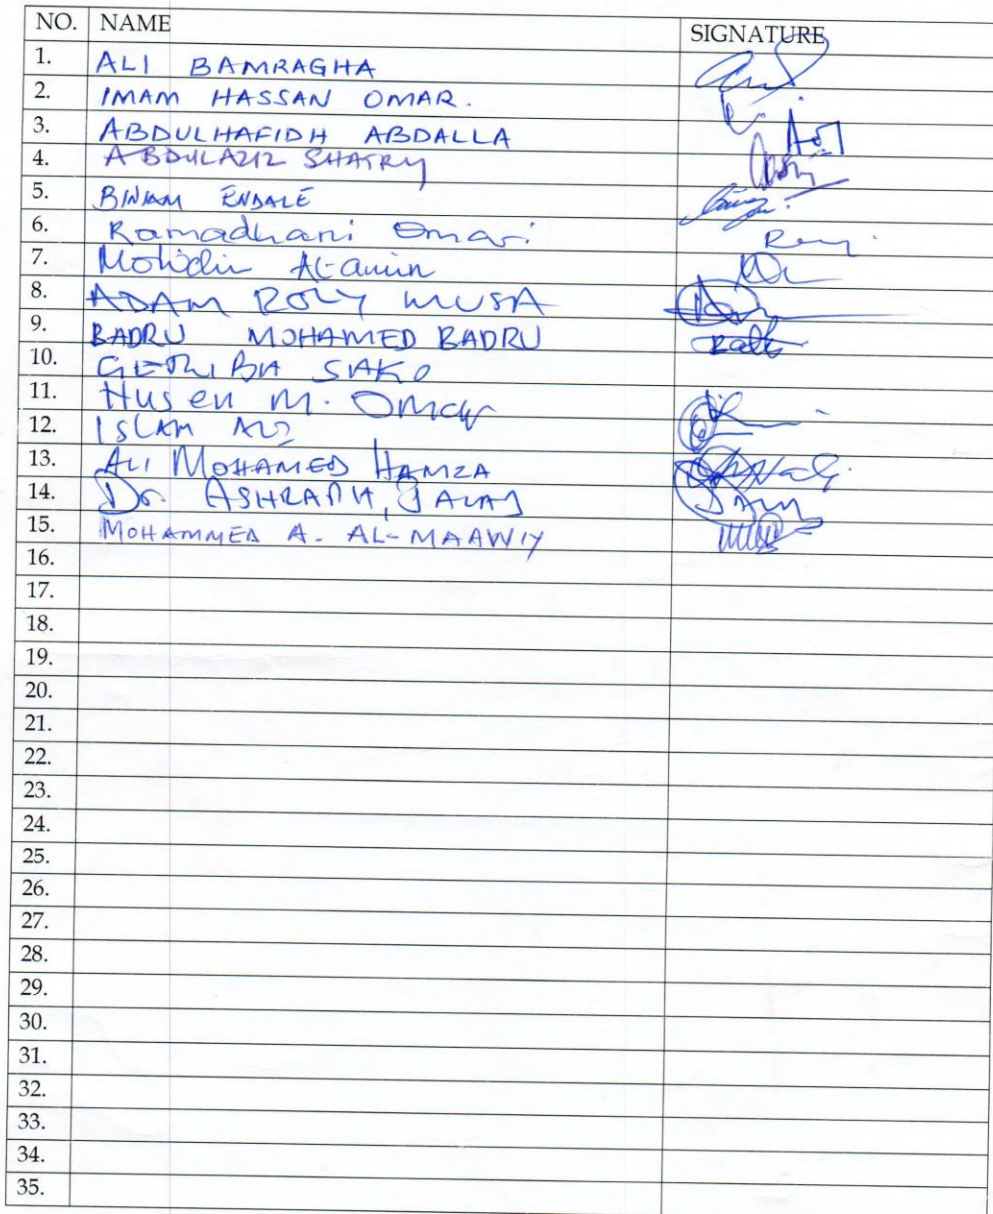 NO. NAME SIGNATURE
1. ALI BAMRAGHA
2. IMAM HASSAN OMAR.
3. ABDULHAFIDH ABDALLA
4. ABDULAZIZ SHATRY
5. BINIAM ENDALE
6. Ramadhani Omari
7. Mohidin Al-amin
8. ADAM ROLY MUSA
9. BADRU MOHAMED BADRU
10. SAKO
11. Husen M. Omar
12. ISLAM ALI
13. ALI MOHAMED HAMZA
14. Dr. JALAJ
15. MOHAMMED A. AL-MAAWIY
16.
17.
18.
19.
20.
21.
22.
23.
24.
25.
26.
27.
28.
29.
30.
31.
32.
33.
34.
35.